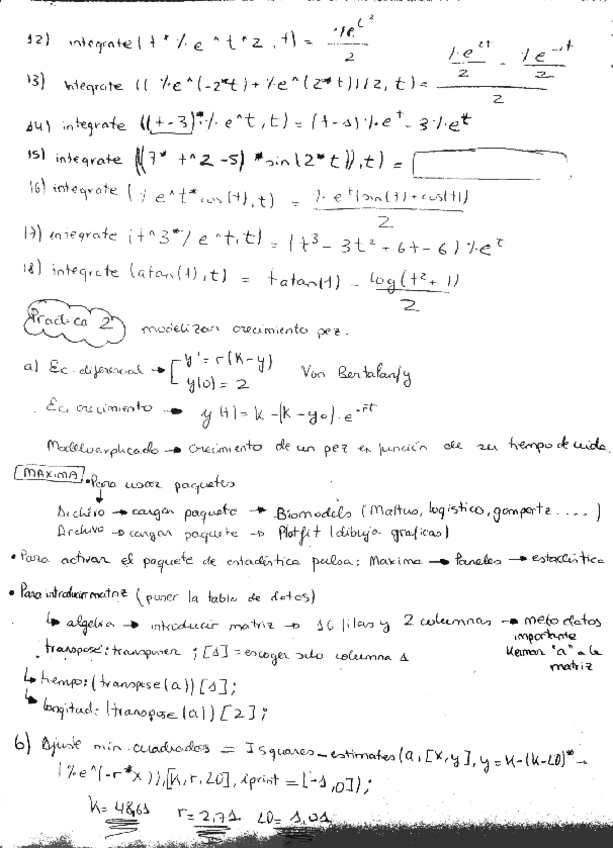 12) integrate(t*%e^t^2,t) = %e^t² / 2
13) integrate((%e^(-2*t)+%e^(2*t))/2,t) = (%e^2t / 2 - %e^-2t / 2) / 2
14) integrate((t-3)*%e^t,t) = (t-1)%e^t - 3%e^t
15) integrate((7*t^2-5)*sin(2*t)),t) =
16) integrate(%e^t*cos(t),t) = %e^t(sin(t)+cos(t)) / 2
17) integrate(t^3*%e^t,t) = (t³ - 3t² + 6t - 6)%e^t
18) integrate(atan(t),t) = t atan(t) - log(t²+1) / 2
Practica 2 modelizar crecimiento pez.
a) Ec. diferencial → [ y' = r(K-y)
y(0) = 2 Von Bertalanfy
Ec. crecimiento → y(t) = K-(K-y0).e^-rt
Modelo explicado → crecimiento de un pez en función de su tiempo de vida.
MÁXIMA • Para usar paquetes
Archivo → cargar paquete → Biomodels (Maltus, logístico, gompertz....)
Archivo → cargar paquete → Plotfit (dibuja graficas)
• Para activar el paquete de estadística pulsa: Maxima → Paneles → estadística
• Para introducir matriz (poner la tabla de datos)
↳ algebra → introducir matriz → 16 filas y 2 columnas → meto datos
importante
llamar "a" a la
matriz
transpose: transponer ; [1] = escoger solo columna 1
↳ tiempo: (transpose(a))[1];
↳ longitud: (transpose(a))[2];
b) Ajuste min. cuadrados = lsquares_estimates(a,[x,y], y=K-(K-L0)*
(%e^(-r*x)),[K,r,L0], iprint=[-1,0]);
K = 48,61 r = 2,71 L0 = 1,01